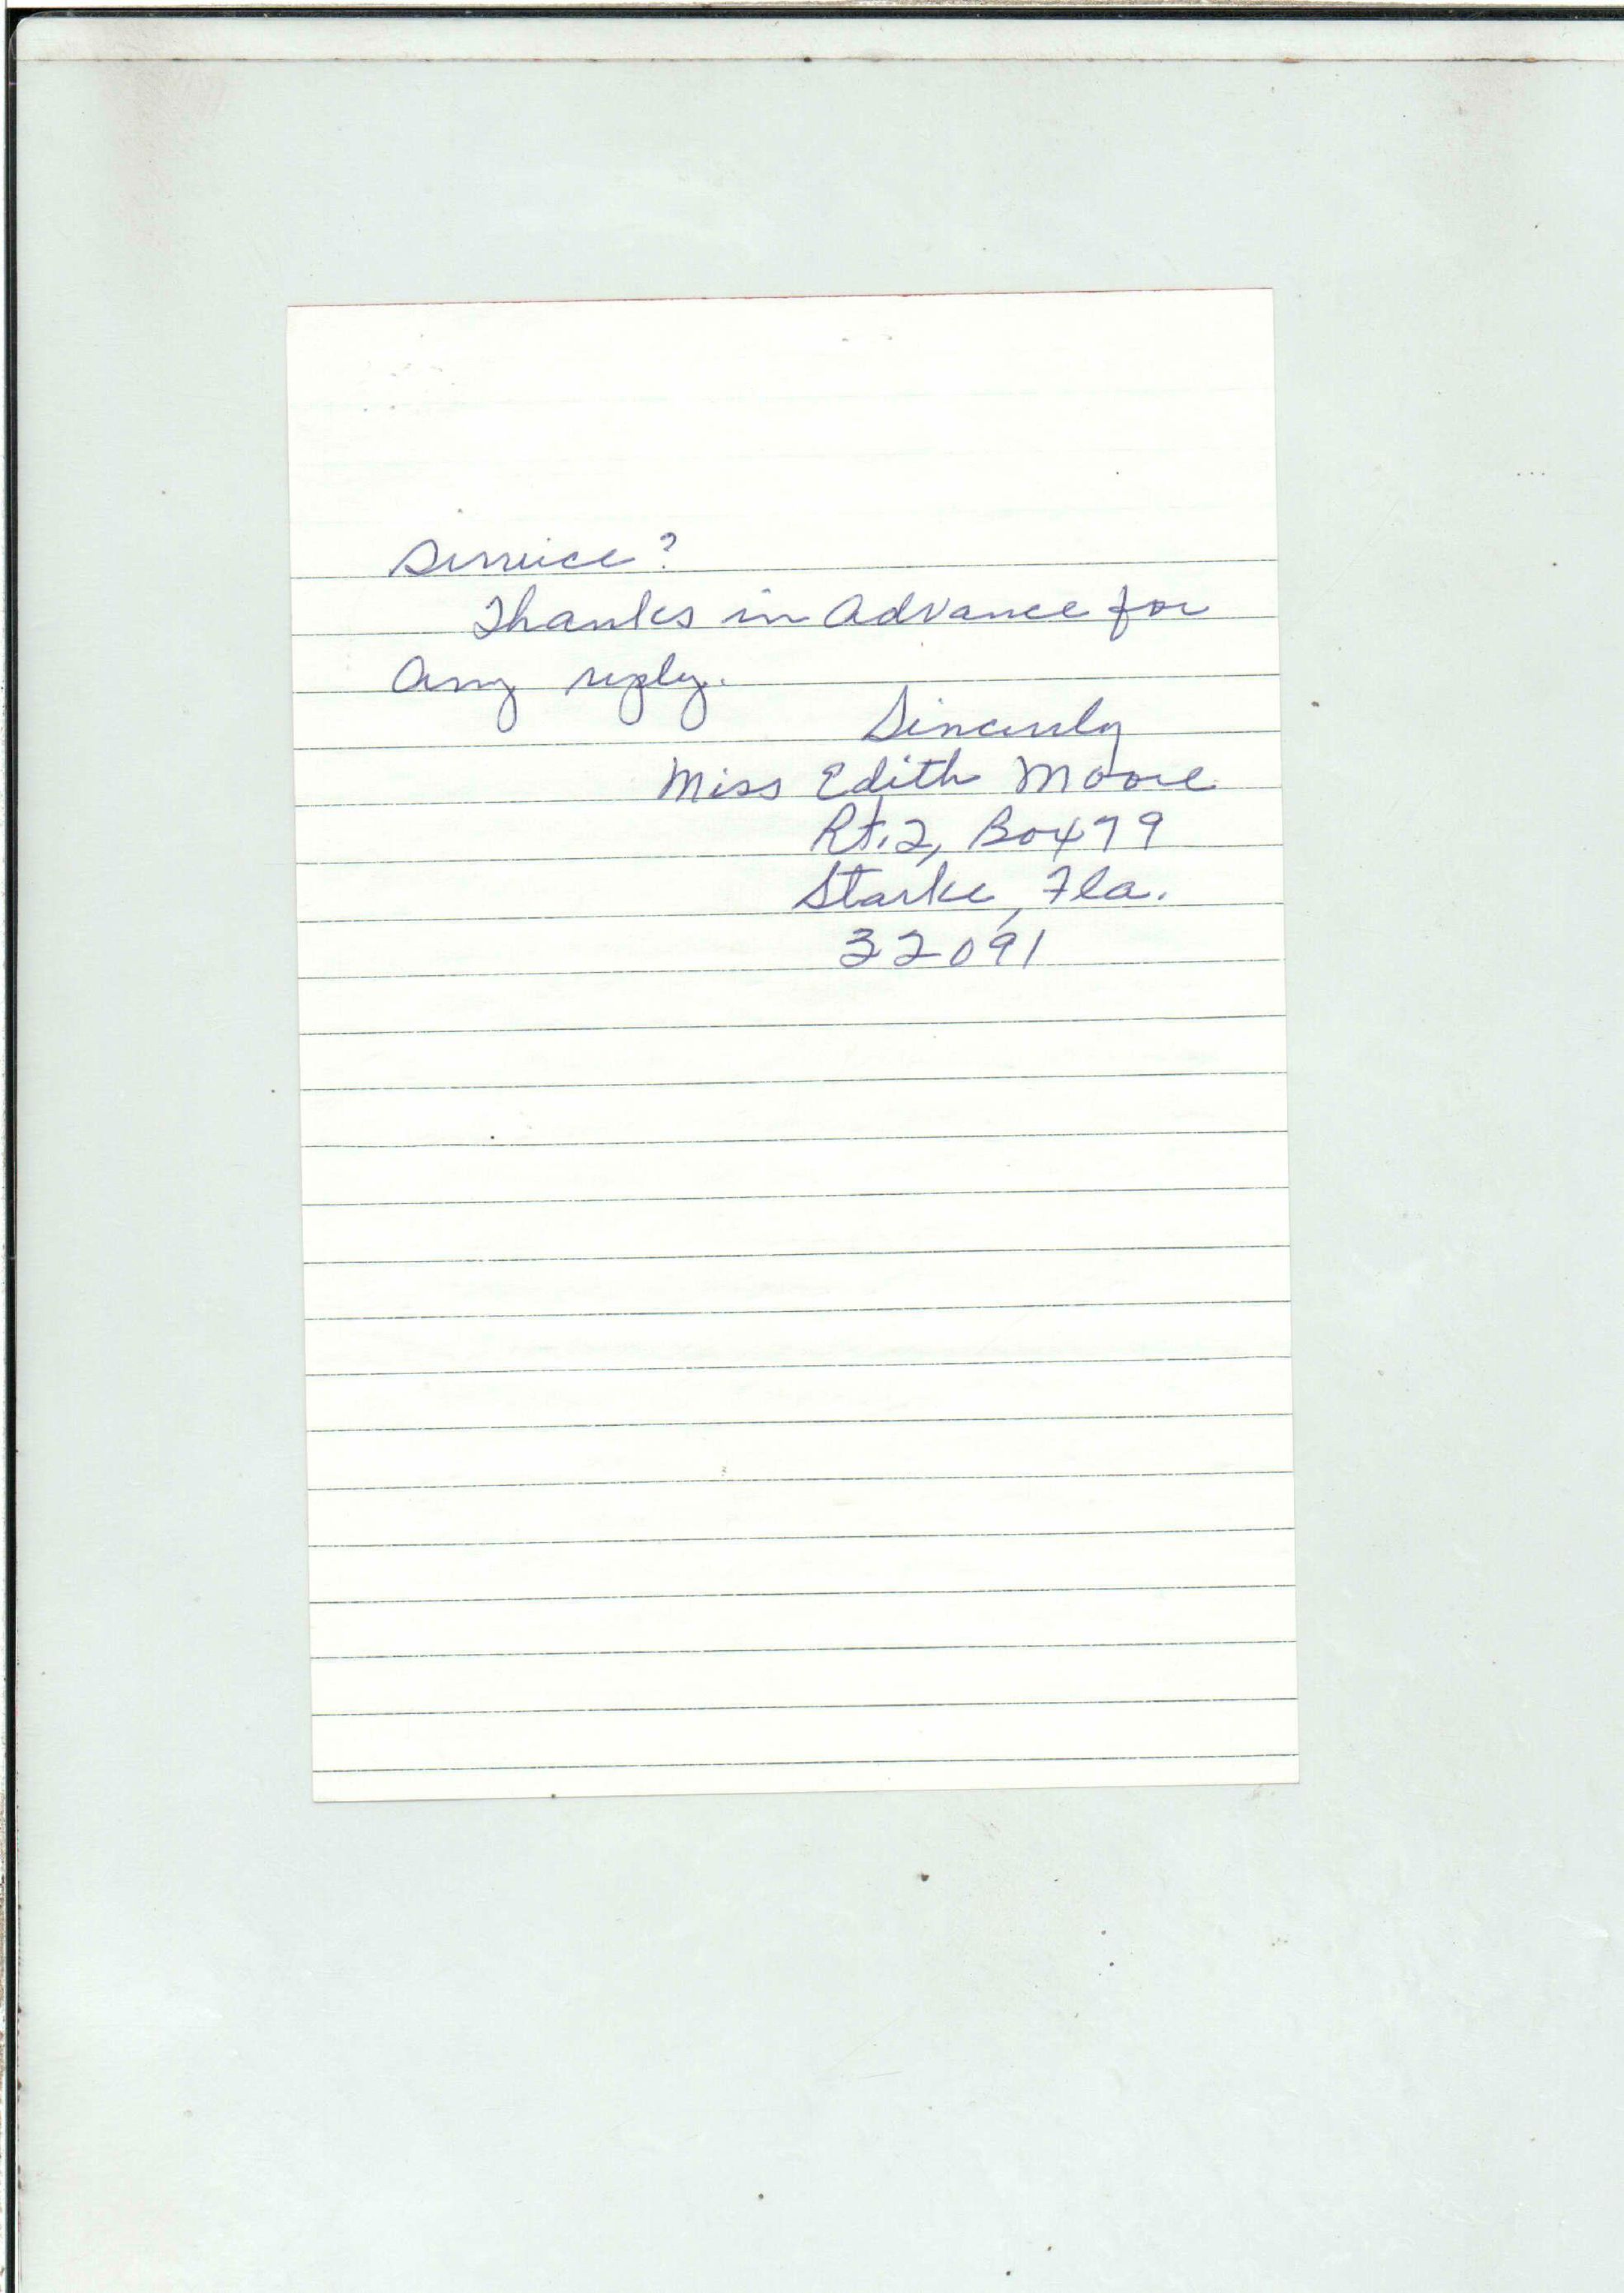 service?
Thanks in Advance for
Any reply.
Sincerely
Miss Edith Moore
Rt. 2, Box 79
Starke, Fla.
32091